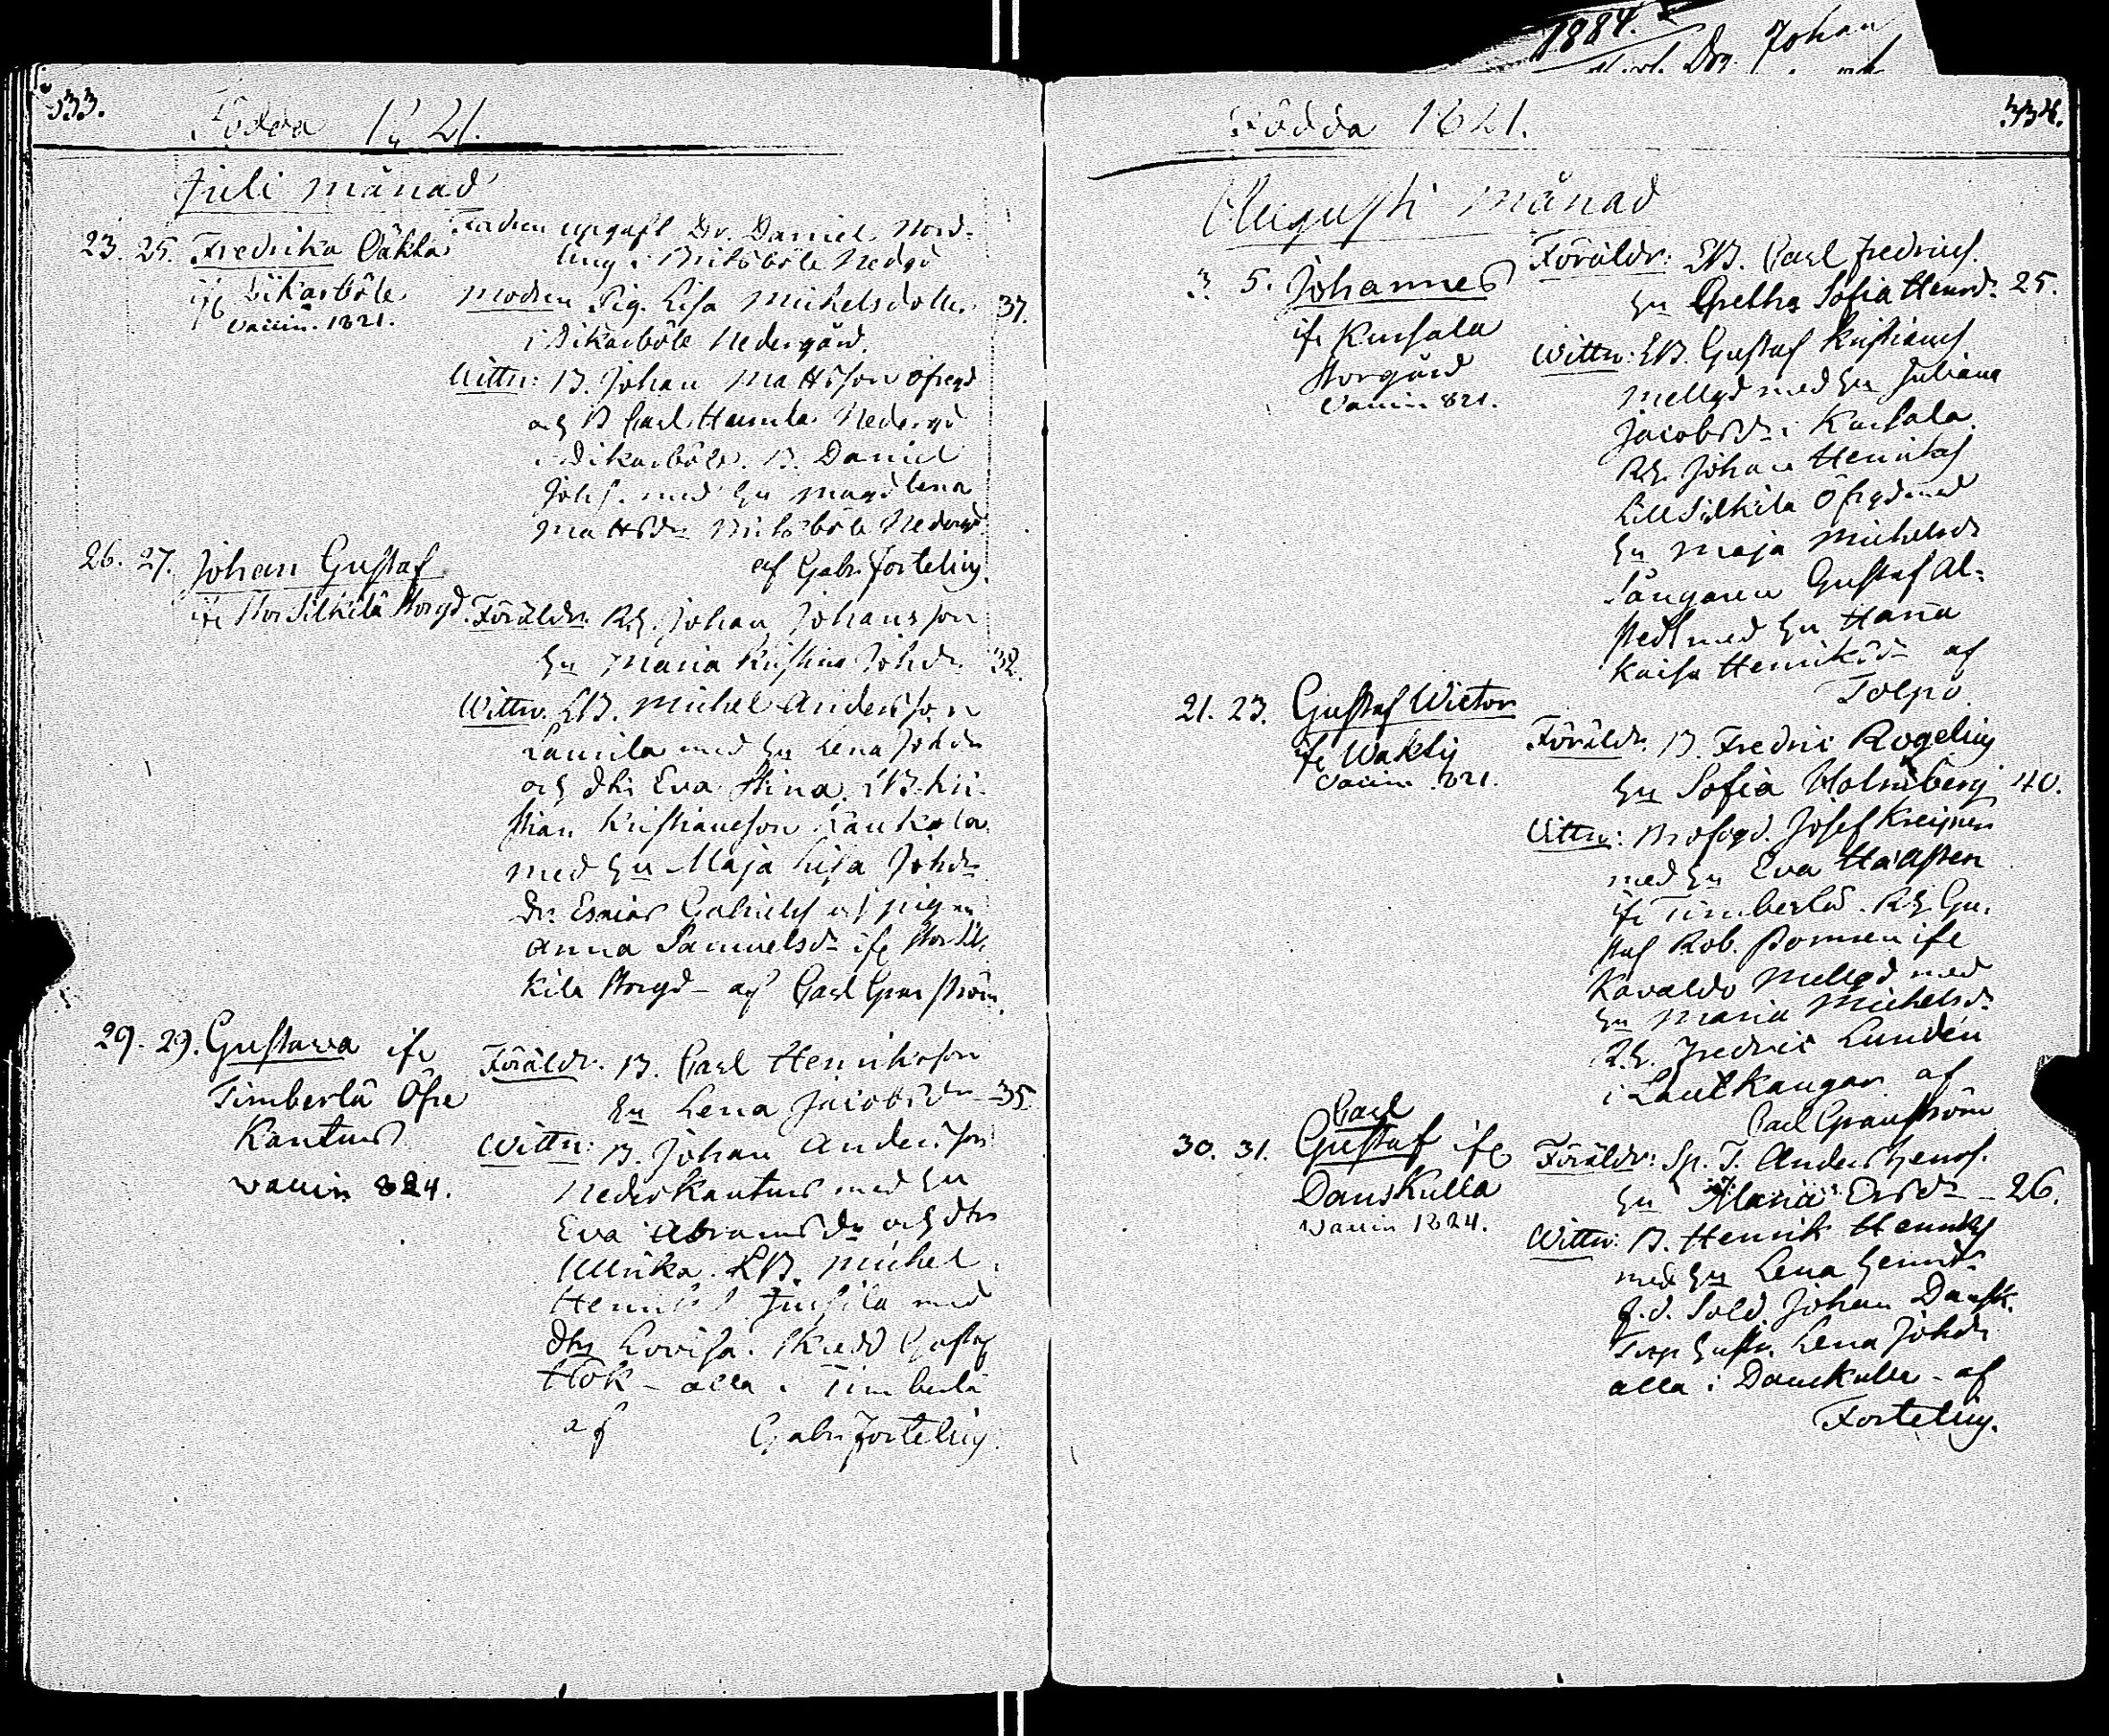 333.
Födda 1821.
Juli månad
23. 25. Fredrika oäkta
ifr Dikarböle
vaccin. 1821.
Fadren uppgafs Dr. Daniel Nord-
ling i Britsböle Nedgd
Modren Pig. Lisa Michelsdotter 37.
i Dikarböle Nedergård.
Wittn: B. Johan Mattsson öfregd
och B Carl Nedergd
i Dikarböle. B. Daniel
Johs. med Hu Magdlena
Mattsdr Nedergd
af Gabr. Fortelius.
26. 27. Johan Gustaf
ifr Stor Silkilä Storgd.
Föräldr. Rh. Johan Johansson
Hu Maria Kristina Johdr. 32.
Wittn. LB. Michel Andersson
Laurila med Hu Lena Johdr
och dtr Eva Stina. LB. Kri-
stian Kristiansson
med Hu Maja Lisa Johdr
Dr. Esaias Gabriels och pigan
Anna Samuelsdr ifr Stor Sil-
kilä Storgd - af Carl Granström.
29. 29. Gustava ifr
Timberlä Öfre
Kantus
vaccin 824.
Föräldr. B. Carl Henriksson
Hu Lena Jacobsdr - 35
Wittn: B. Johan Andersson
Nederkantus med Hu
Eva Abramsdr och dtr
Ullrika. LB. Michel
Henriks Jussila med
dtr Lovisa. Skredd Gustaf
Hök - alla i Timberlä
af Gabr. Fortelius.
1884.
Dr. Johan
334.
Födda 1821.
Augusti månad
3. 5. Johannes
ifr Kursala
Storgård
Vaccin 821.
Föräldr: LB. Carl Fredrics.
Hu Gretha Sofia Henrsdr. 25.
Wittn: LB. Gustaf Kristians
Mellgd med Hu Juliana
Jacobsdr i Kursala.
Rh. Johan Henriks
Lill Silkilä Öfrgd med
Hu Maja Michelsdr
Sångaren Gustaf Al-
stedt med Hu Hanna
Kaisa Henriksdr af
Tolpo.
21. 23. Gustaf Wictor
ifr Waktis
Vaccin 821.
Föräldr. B. Fredric Rogelius
Hu Sofia Holmberg 40.
Wittn: Brofogd. Josef
med Hu Eva
ifr Timberlä. Rh. Gu-
staf Rob. ifr
Kavaldo Mellgd med
Hu Maria Michelsdr
Rh. Fredric Lundén
i Lautkangar af
Carl Granström
30. 31. Carl
Gustaf ifr
Danskulla
Vaccin 1824.
Föräldr: Sp. T. Anders Henrs.
Hu Maria Ersdr - 26.
Wittn: B. Henrik Henriks
med Hu Lena Henrsdr
f.d. Sold. Johan Dansk.
Torp hustr. Lena Johdr
alla i Danskulla - af
Fortelius.